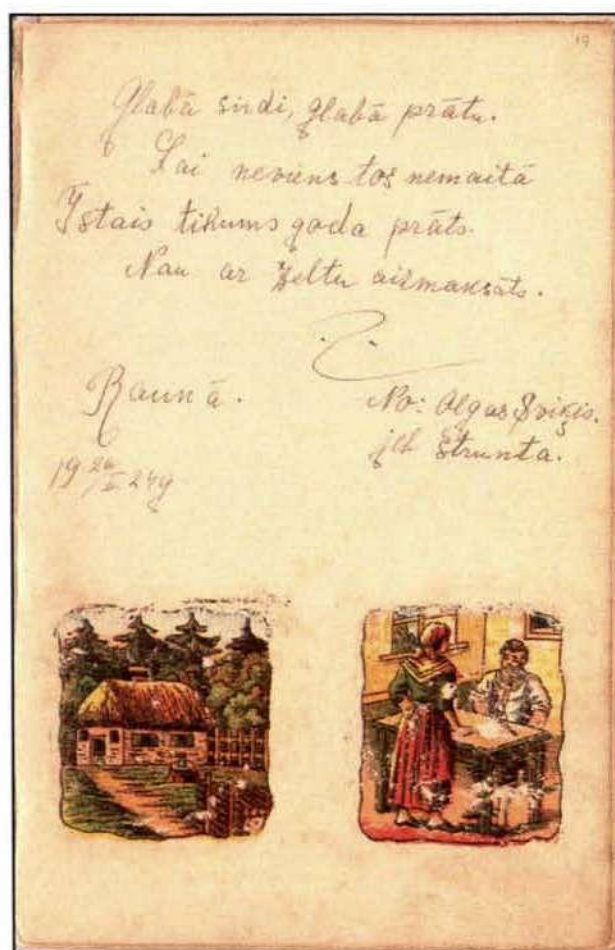 19
Glabā sirdi, glabā prātu.
Lai neviens tos nemaitā
Īstais tikums goda prāts.
Nau ar zeltu aizmaksāts.
Raunā.
No: Olgas
jeb Štrunta.
19 26/ 24g